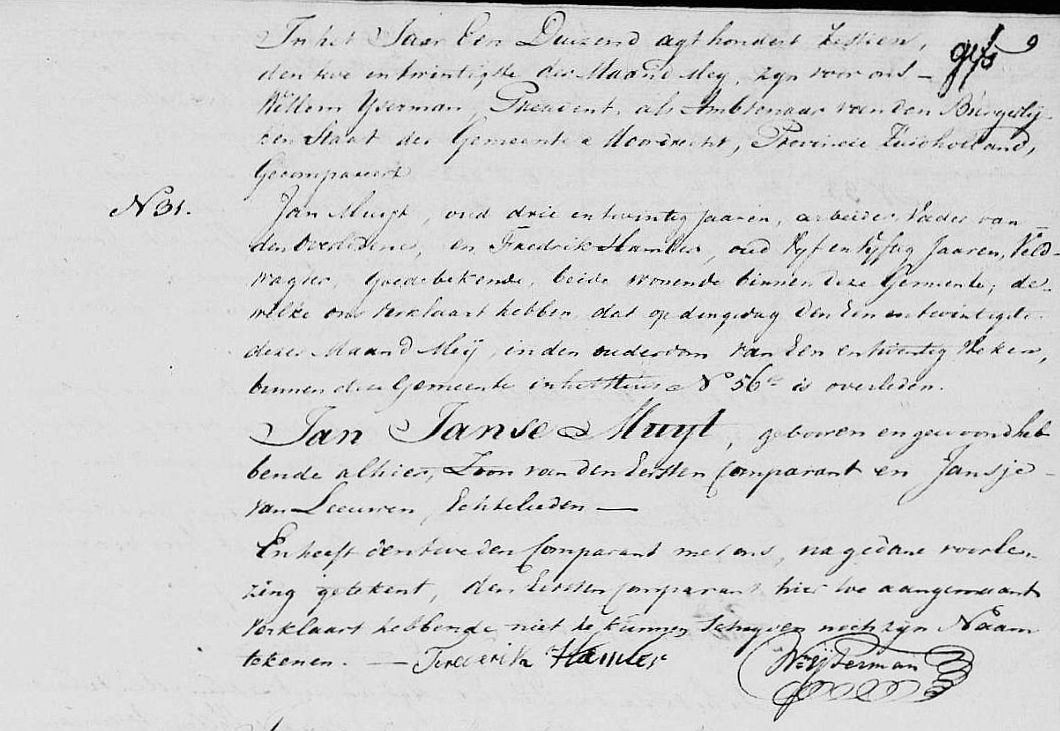 In het Jaar Een Duizend agthondert Zestien,
den twe en twintigste der Maand Mey, zyn voor ons –
Willem Yserman, President, als Ambtenaar van den Burgerly-
ken Staat der Gemeente Moordrecht, Provincie Zuidholland,
Gecompareert
No 31.
Jan Muyt, oud drie en twintig jaaren, arbeider Vader van
den Overledene, en Fredrik Hamler, oud Vyf en Vyftig Jaaren, Veld-
wagter, goede bekende, beide wonende binnen deze Gemeente; de-
welke ons Verklaart hebben, dat op dingsdag den Een en twintigste
dezer Maand Meij, in den ouderdom van Een en twintig Weken,
binnen deze Gemeente in het Huis No 56 is overleden.
Jan Janse Muyt, gebooren en gewoond heb
bende alhier, Zoon van den Eersten Comparant en Jansje
van Leeuwen, Echtelieden —
En heeft den tweden Comparant met ons, na gedane voorle-
zing getekent, den Eersten Comparant hier toe aangemaant
Verklaart hebbende niet te kunnen Schryven noch zyn Naam
tekenen. — Frederik Hamler Wm Yserman